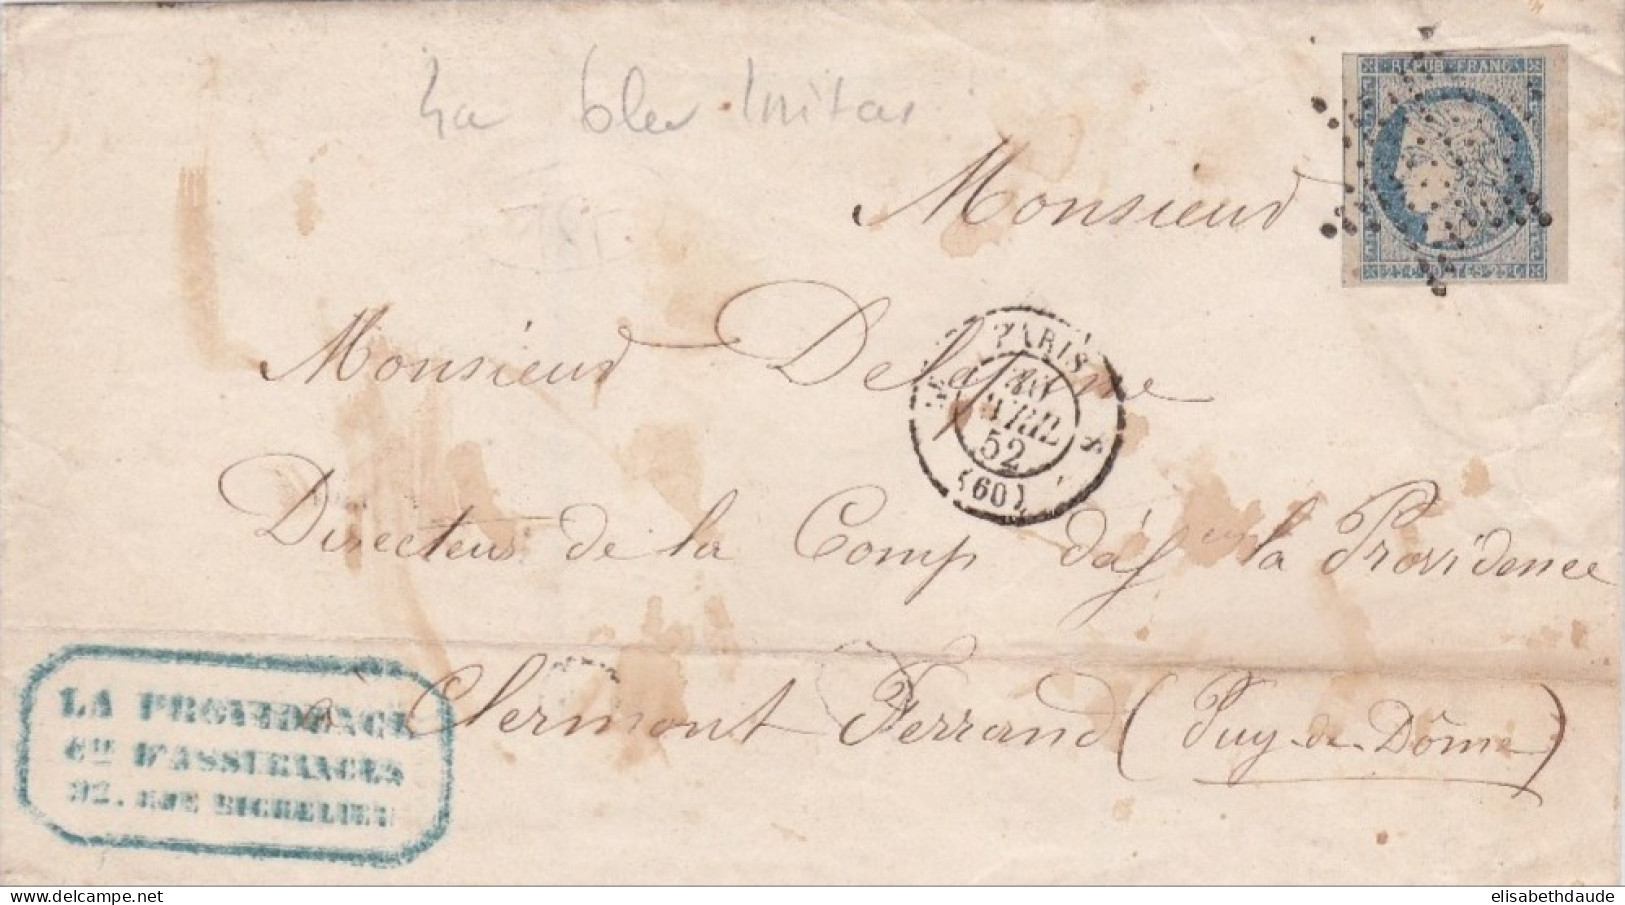 4a bleu
REPUB FRANC
25 C POSTES 25 C
Monsieur
Monsieur
PARIS
AVRIL
52
(60)
Directeur de la Comp d'ass la Providence
à Clermont Ferrand (Puy-de-Dôme)
LA PROVIDENCE
CIE D'ASSURANCES
92, RUE RICHELIEU
delcampe.net
elisabethdaude